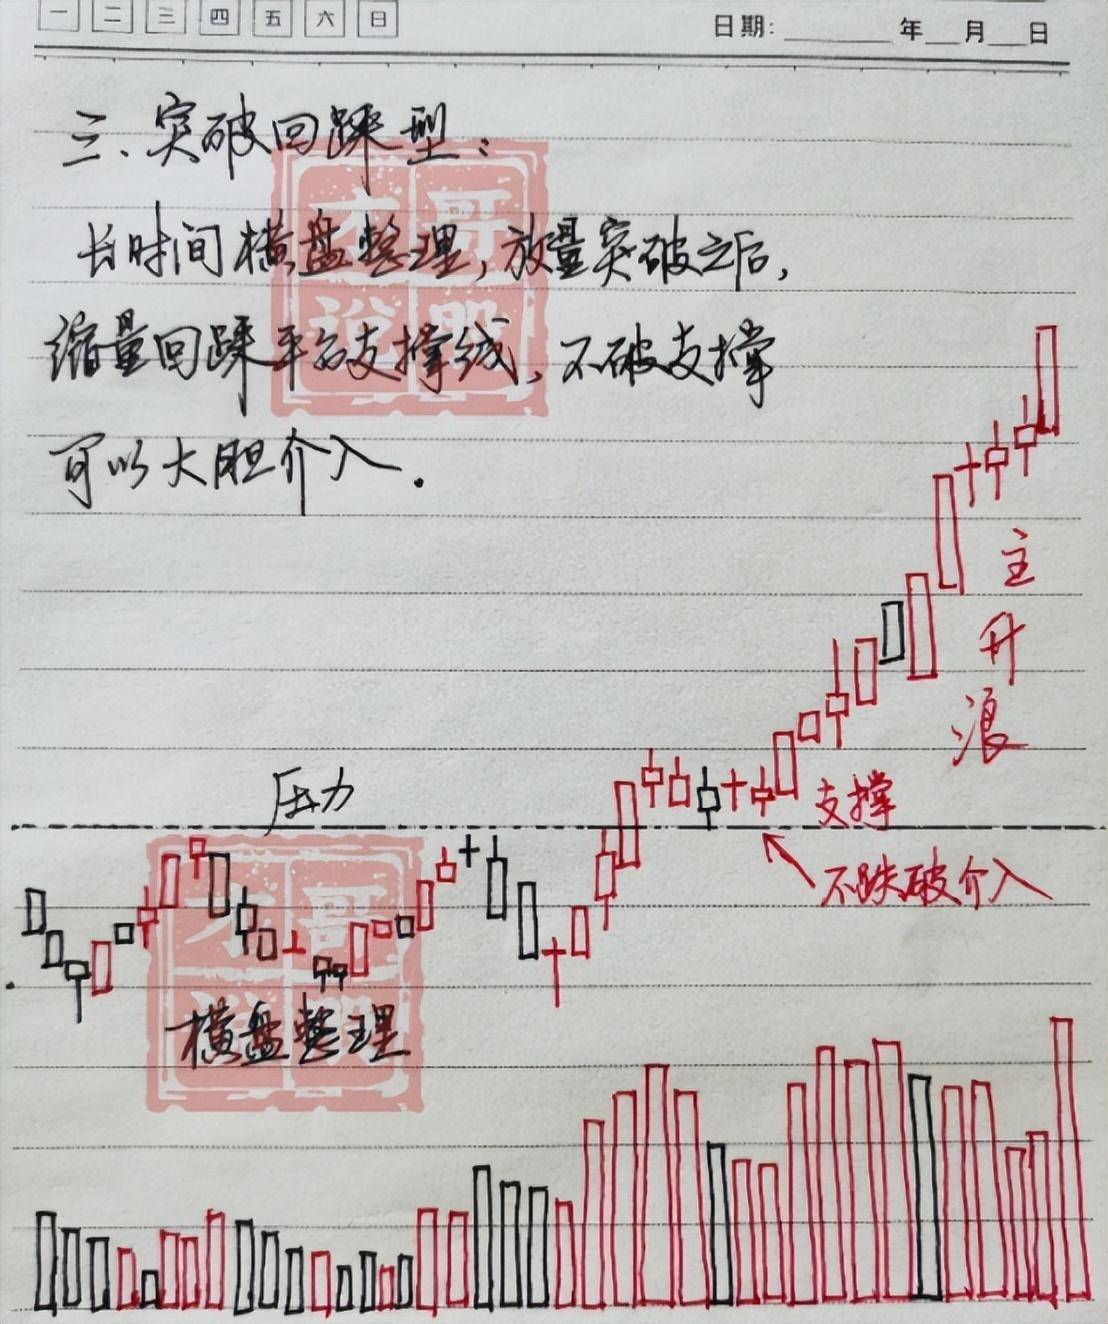 一 二 三 四 五 六 日
日期: ________ 年 __ 月 __ 日
三、突破回踩型：
长时间横盘整理，放量突破之后，
缩量回踩平台支撑线，不破支撑
可以大胆介入．
主升浪
压力
支撑
不跌破介入
横盘整理
才哥说股
才哥说股